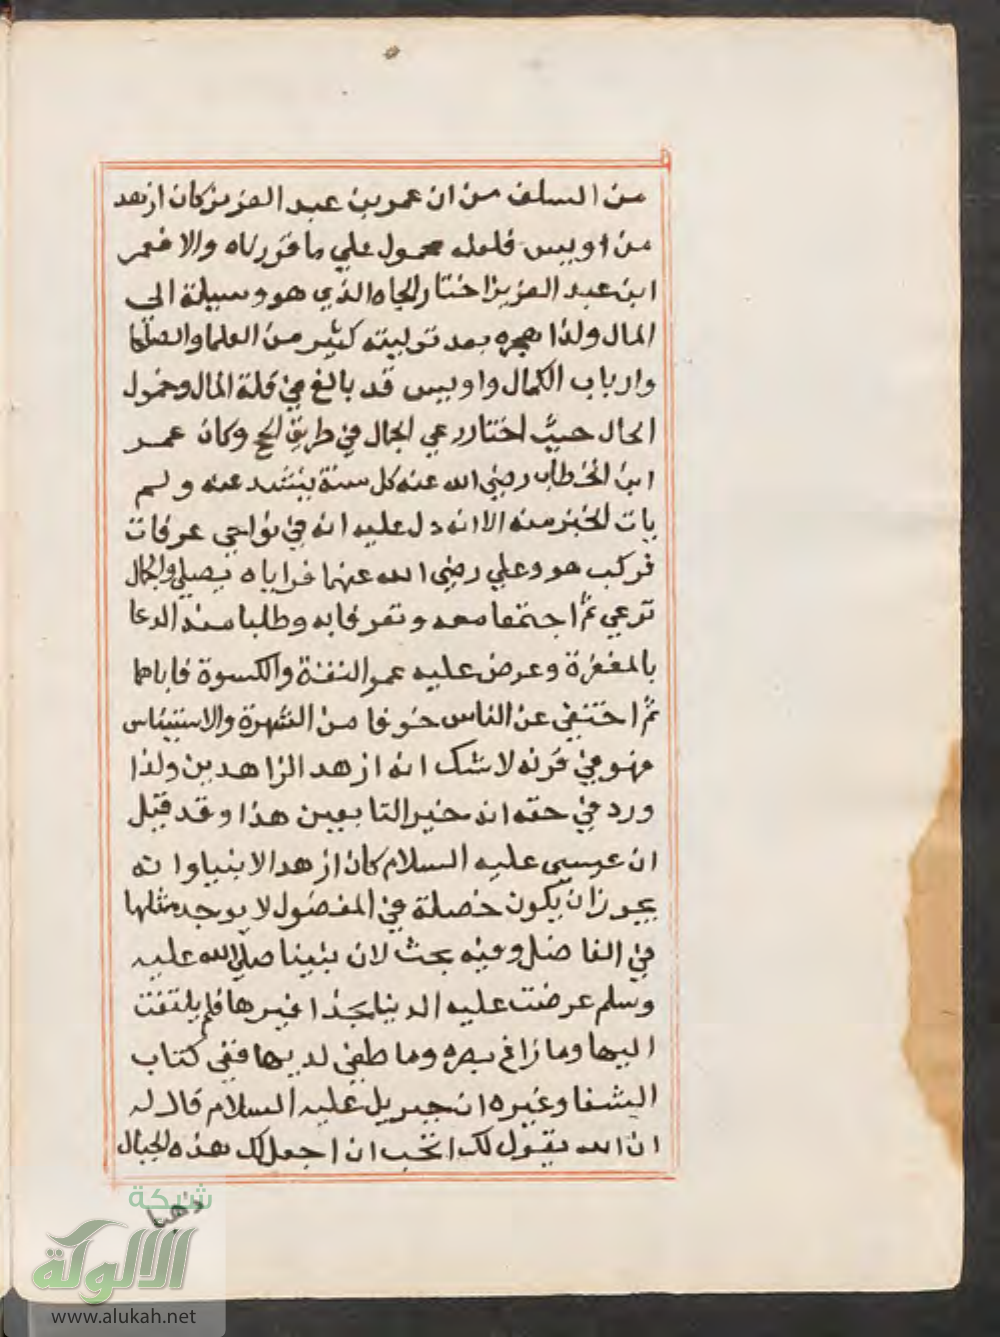 من السلف من ان عمر بن عبد العزيز كان ازهد
من اويس فلعله محمول علي ما قررناه والا فعمر
ابن عبد العزيز اختار الجاه الذي هو وسيلة الى
المال ولذا هجره بعد توليته كثير من العلما والصلحا
وارباب الكمال واويس قد بالغ في قلة المال وخمول
الحال حيث اختار رعي الجمال في طريق الحج وكان عمر
ابن الخطاب رضي الله عنه كل سنة ينشد عنه ولم
يات الخبر منه الا انه دل عليه انه في نواحي عرفات
فركب هو وعلي رضي الله عنهما فراياه يصلي والجمال
ترعي ثم اجتمعا معه وتعرفا به وطلبا منه الدعا
بالمغفرة وعرض عليه عمر النفقة والكسوة فاباهما
ثم اختفي عن الناس خوفا من الشهرة والاستيناس
فهو في قرنه لا شك انه ازهد الزاهدين ولذا
ورد في حقه انه خير التابعين هذا وقد قيل
ان عيسي عليه السلام كان ازهد الانبيا وانه
يجوز ان يكون خصلة في المفضول لا يوجد مثلها
في الفاضل وفيه بحث لان نبينا صلي الله عليه
وسلم عرضت عليه الدنيا بحذافيرها فلم يلتفت
اليها وما زاغ بصره وما طغي لديها ففي كتاب
الشفا وغيره ان جبريل عليه السلام قال له
ان الله يقول لك اتحب ان اجعل لك هذه الجبال
ذهبا
شبكة
الألوكة
www.alukah.net